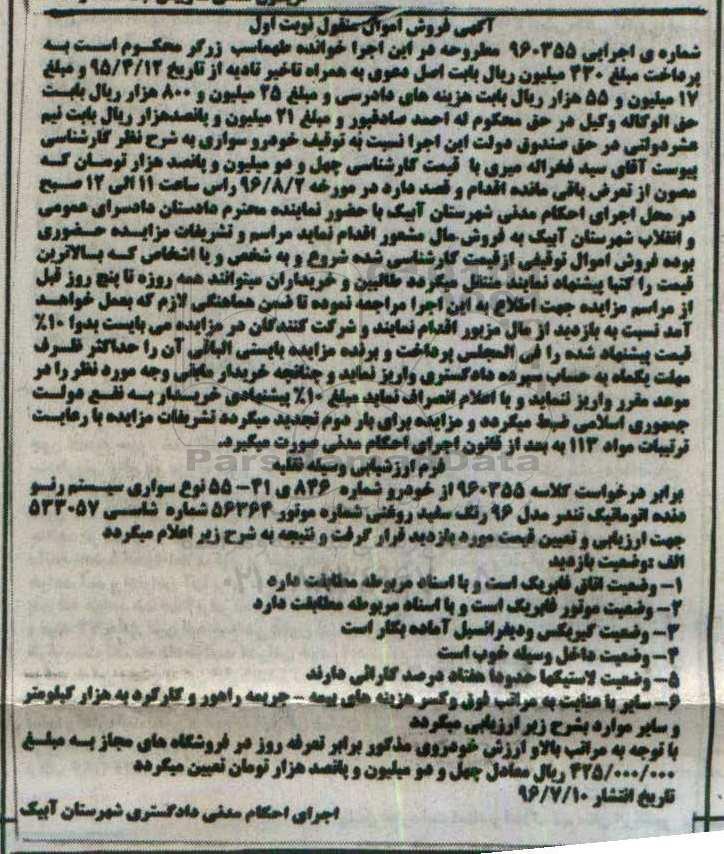 آگهی فروش اموال منقول نوبت اول
شماره ی اجرایی ۹۶۰۳۵۵ مطروحه در این اجرا خوانده طهماسب زرگر محکوم است به
پرداخت مبلغ ۳۳۰ میلیون ریال بابت اصل دعوی به همراه تاخیر تادیه از تاریخ ۹۵/۴/۱۲ و مبلغ
۱۷ میلیون و ۵۵ هزار ریال بابت هزینه های دادرسی و مبلغ ۲۵ میلیون و ۸۰۰ هزار ریال بابت
حق الوکاله وکیل در حق محکوم له احمد صادقپور و مبلغ ۲۱ میلیون و پانصدهزار ریال بابت نیم
عشردولتی در حق صندوق دولت این اجرا نسبت به توقیف خودرو سواری به شرح نظر کارشناسی
پیوست آقای سید فخراله میری با قیمت کارشناسی چهل و دو میلیون و پانصد هزار تومان که
مصون از تعرض باقی مانده اقدام و قصد دارد در مورخه ۹۶/۸/۲ راس ساعت ۱۱ الی ۱۲ صبح
در محل اجرای احکام مدنی شهرستان آبیک با حضور نماینده محترم دادستان دادسرای عمومی
و انقلاب شهرستان آبیک به فروش مال مشعور اقدام نماید مراسم و تشریفات مزایده حضوری
بوده فروش اموال توقیفی ازقیمت کارشناسی شده شروع و به شخص و یا اشخاص که بالاترین
قیمت را کتبا پیشنهاد نمایند منتقل میگردد طالبین و خریداران میتوانند همه روزه تا پنج روز قبل
از مراسم مزایده جهت اطلاع به این اجرا مراجعه نموده تا ضمن هماهنگی لازم که بعمل خواهد
آمد نسبت به بازدید از مال مزبور اقدام نمایند و شرکت کنندگان در مزایده می بایست بدوا ۱۰٪
قیمت پیشنهاد شده را فی المجلس پرداخت و برنده مزایده بایستی الباقی آن را حداکثر ظرف
مهلت یکماه به حساب سپرده دادگستری واریز نماید و چنانچه خریدار مابقی وجه مورد نظر را در
موعد مقرر واریز ننماید و یا اعلام انصراف نماید مبلغ ۱۰٪ پیشنهادی خریدار به نفع دولت
جمهوری اسلامی ضبط میگردد و مزایده برای بار دوم تجدید میگردد تشریفات مزایده با رعایت
ترتیبات مواد ۱۱۳ به بعد از قانون اجرای احکام مدنی صورت میگیرد.
فرم ارزشیابی وسیله نقلیه
برابر درخواست کلاسه ۹۶۰۳۵۵ از خودرو شماره ۸۴۶ ی ۴۱- ۵۵ نوع سواری سیستم رنو
دنده اتوماتیک تندر مدل ۹۶ رنگ سفید روغنی شماره موتور ۵۶۳۶۴ شماره شاسی ۵۳۳۰۵۷
جهت ارزیابی و تعیین قیمت مورد بازدید قرار گرفت و نتیجه به شرح زیر اعلام میگردد
الف :وضعیت بازدید
۱- وضعیت اتاق فابریک است و با اسناد مربوطه مطابقت دارد
۲- وضعیت موتور فابریک است و با اسناد مربوطه مطابقت دارد
۳- وضعیت گیربکس ودیفرانسیل آماده بکار است
۴- وضعیت داخل وسیله خوب است
۵- وضعیت لاستیکها حدودا هفتاد درصد کارائی دارند
۶- سایر با عنایت به مراتب فوق وکسر هزینه های بیمه – جریمه راهور و کارکرد به هزار کیلومتر
و سایر موارد بشرح زیر ارزیابی میگردد
با توجه به مراتب بالاو ارزش خودروی مذکور برابر تعرفه روز در فروشگاه های مجاز به مبلغ
۴۲۵/۰۰۰/۰۰۰ ریال معادل چهل و دو میلیون و پانصد هزار تومان تعیین میگردد
تاریخ انتشار ۹۶/۷/۱۰
اجرای احکام مدنی دادگستری شهرستان آبیک